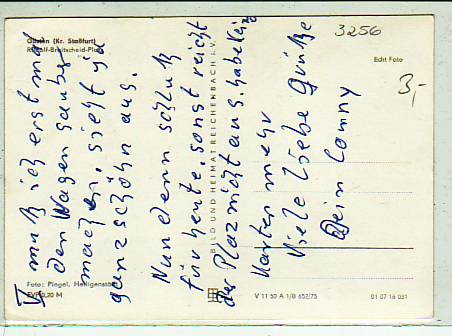 Güsten (Kr. Staßfurt)
Rudolf-Breitscheid-Platz
3256
Echt Foto
3,-
V muß ich erst mal
den Wagen sauber
machen. sieht ja
ganz schön aus.
Nun denn schluß
für heute. sonst reicht
der Plaz nicht aus. habe kein
Karten mehr
Viele liebe Grüße
Dein Conny
BILD UND HEIMAT REICHENBACH I. V.
Foto: Pingel, Heiligenstadt
EVP 0,20 M
V 11 50 A 1/B 652/75
01 07 16 031